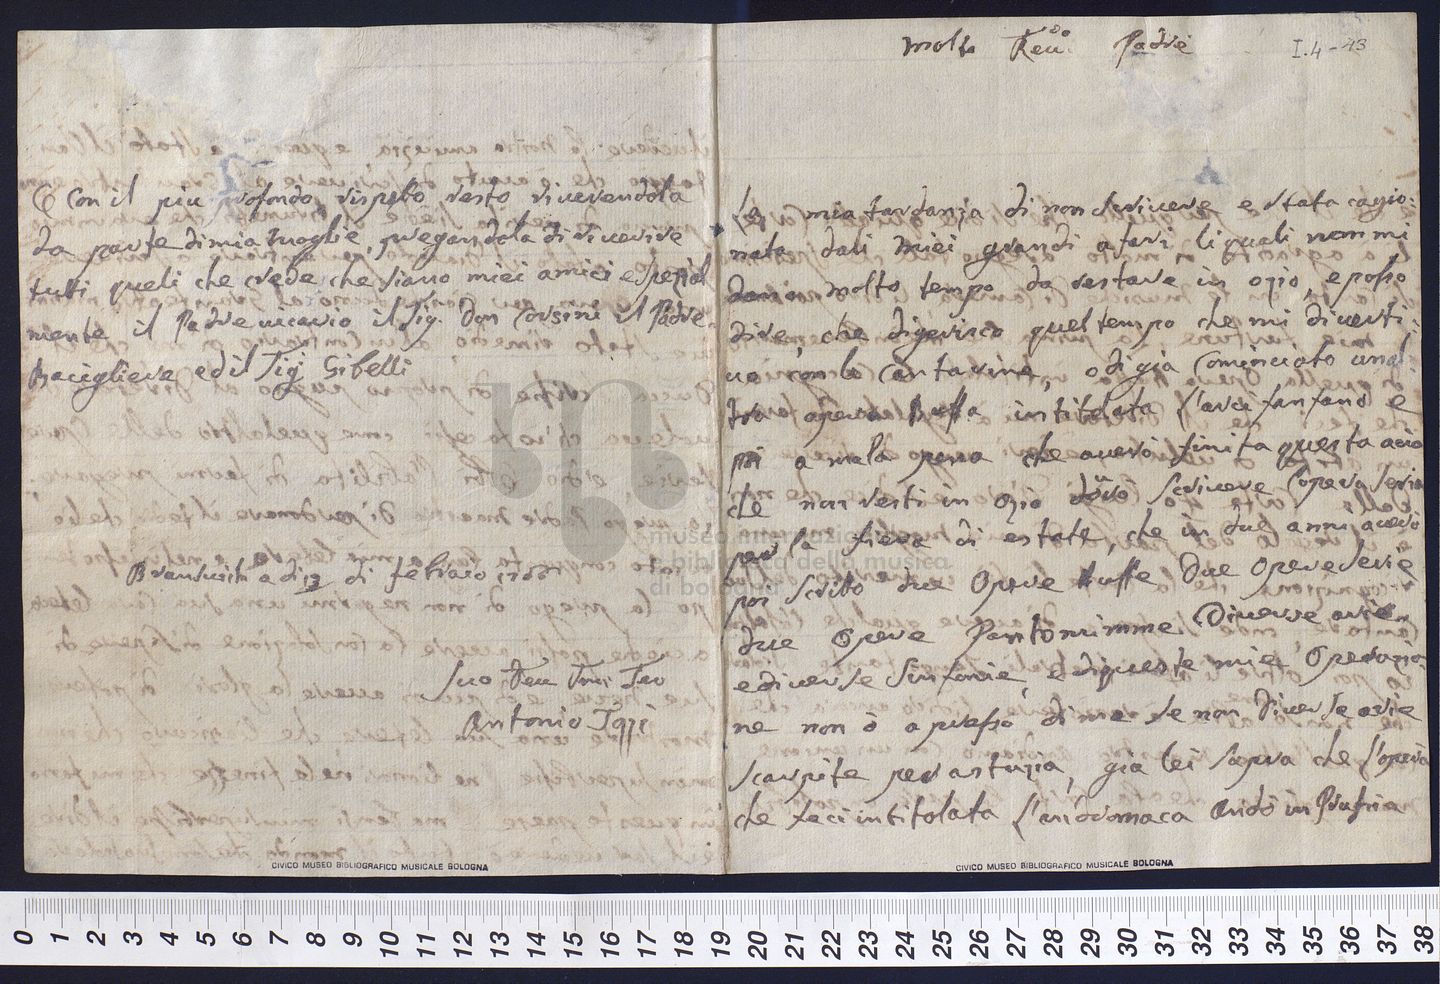 Molto Reu.do Padre
I.4-43
La mia tardanza di non scriuere e stata cagio:
nata dali miei grandi afari, li quali non mi
dano molto tempo da restare in ozio, e posso
dire, che digerisco quel tempo che mi diuerti:
uo con le Cantarine, o di gia Cominciato unal:
tra opera Buffa intitolata l'arcifanfano e
poi a mala pena che auerò finita questa acio
che non resti in ozio dourò scriuere l'opera seria
per la fiera di estate, che in due anni auerò
poi scrito due Opere Buffe due Opere serie
due Opere Pantomimme Diuerse arie
e diuerse Sinfonie, e di queste mie Operazio:
ne non ò apresso di me se non Diuerse arie
scarpite per astuzia, gia lei saprà che l'opera
che feci intitolata l'andromaca andò in Prussia
E Con il piu profondo rispeto resto riuerendola
da parte di mia moglie, pregandola di riuerire
tutti queli che crede che siano miei amici e spezial
mente il Padre uicario il Sig. Don Corsini il Padre
Baciglieve ed il Sig. Gibelli
Bransuich a di 13 di febraro
Suo
Antonio Tozzi
museo internazionale
e biblioteca della musica
di bologna
CIVICO MUSEO BIBLIOGRAFICO MUSICALE BOLOGNA
CIVICO MUSEO BIBLIOGRAFICO MUSICALE BOLOGNA
0 1 2 3 4 5 6 7 8 9 10 11 12 13 14 15 16 17 18 19 20 21 22 23 24 25 26 27 28 29 30 31 32 33 34 35 36 37 38